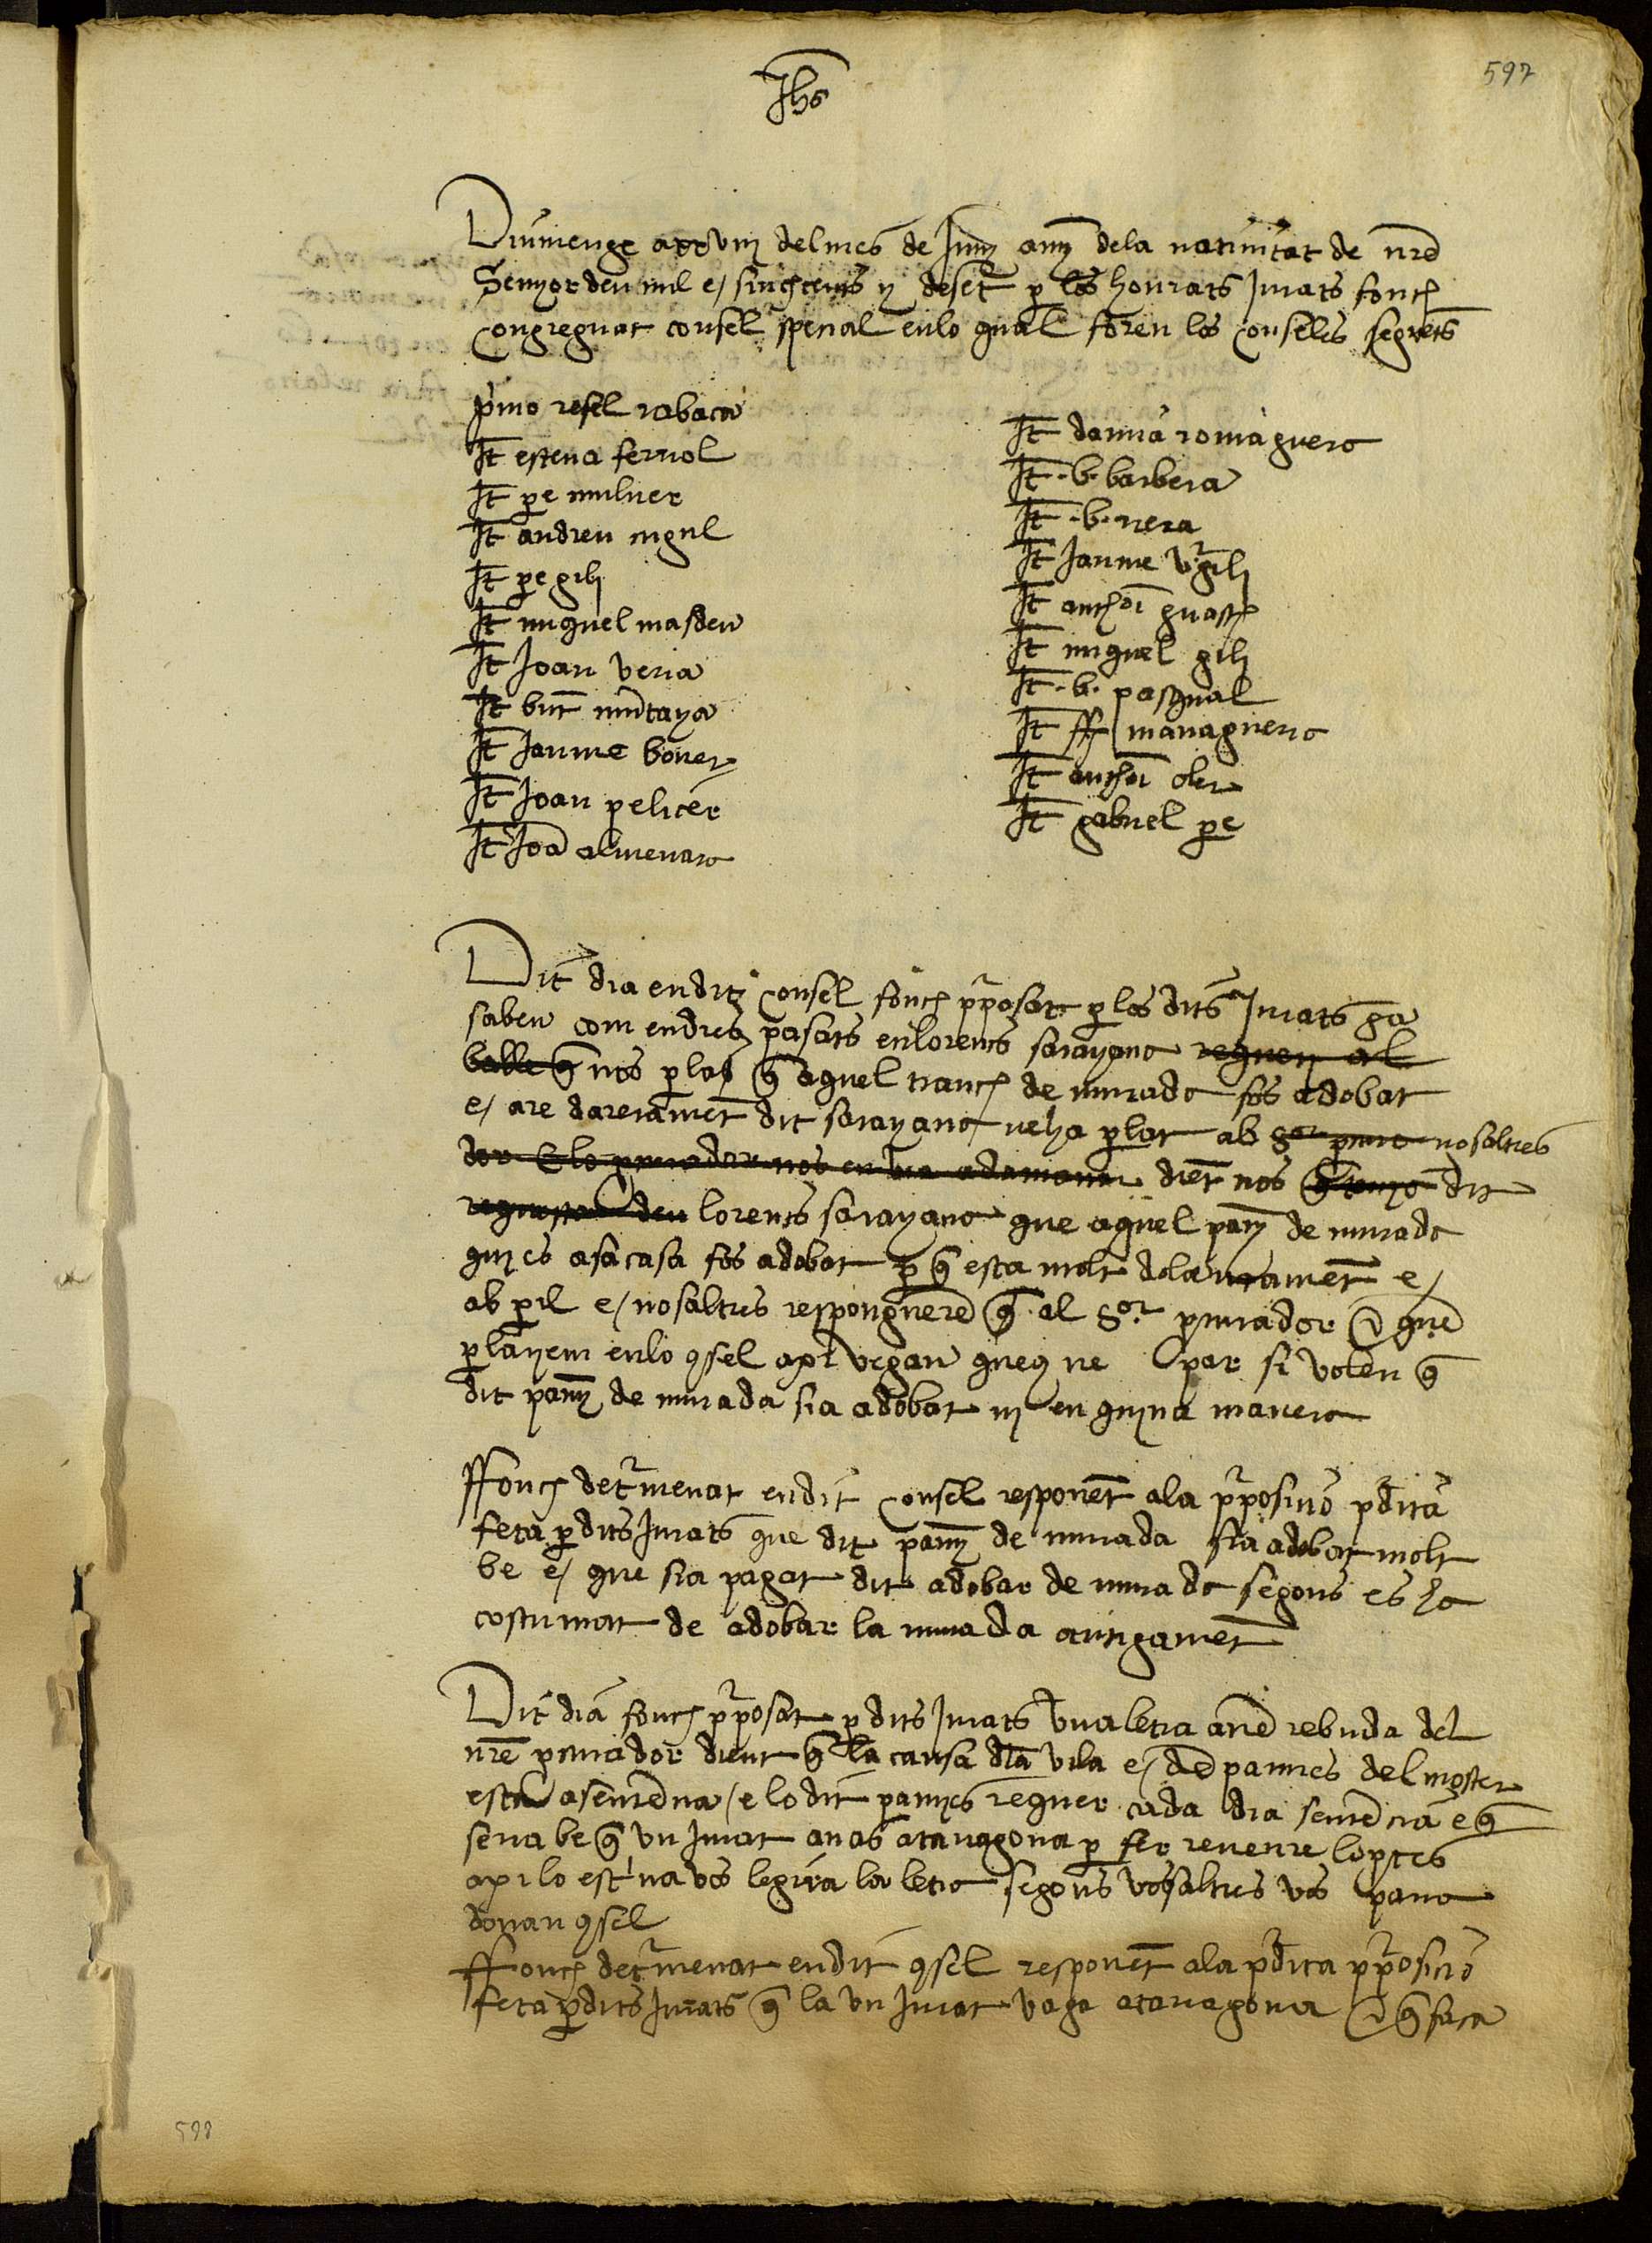 597
Jhs
Diumenge a xxviij del mes de Juny any dela natiuitat de nre
Senyor deu mil e sinchcents y deset p los honrats Jurats fonch
Congreguat consel spetial enlo qual foren los Consellers seguets
pmo resel rabaca
It esteua ferriol
It pe muluer
It andreu migul
It pe gili
It miquel masdeu
It Joan veria
It but muntaya
It Jaume bouer
It Joan pelicer
It Joa almenara
It damia romaguera
It .b. barbera
It .b. riera
It Jaume vrgili
It anthoi guasch
It miquel gili
It .b. pasqual
It ff managuera
It anthoi oler
It gabriel pe
Dit dia en dit Consel fonch pposat p los dits Jurats ja
saben com en dies pasats en lorens sarayana requeri al
balle q nos plas q aquel tranch de murada fos adobat
e are darerament dit sarayana neha plat ab nosaltres
diet nos dit
lorens sarayana que aquel pany de murada
qui es asa casa fos adobat p q esta molt dolentament e
ab pil e nosaltres responguerem q al Sor pcurador e que
plariem enlo qsel axi vegan queus ne par si volen q
dit pany de murada sia adobat ni en quina manera
ffonch detrmenat en dit Consel responet ala pposicio pdita
feta p dits Jurats que dit pany de murada sia adobat molt
be e que sia pagat dit adobar de murada segons es ha
costumat de adobar la murada antigamet
Dit dia fonch pposat p dits Jurats vna letra aue rebuda del
nre pcurador dient q la causa dla vila e de pamies del moster
esta a sentencia e lo dit pamies requer cada dia sentencia e q
seria be q vn Jurat anas a tarragona p fer reueure lo pces
axi lo escriua vos legira la letra segons vosaltres vos para
donau qsel
ffonch detrmenat en dit qsel responet ala pdita pposicio
feta p dits Jurats q la vn Jurat vaga a tarragona e q faca
598